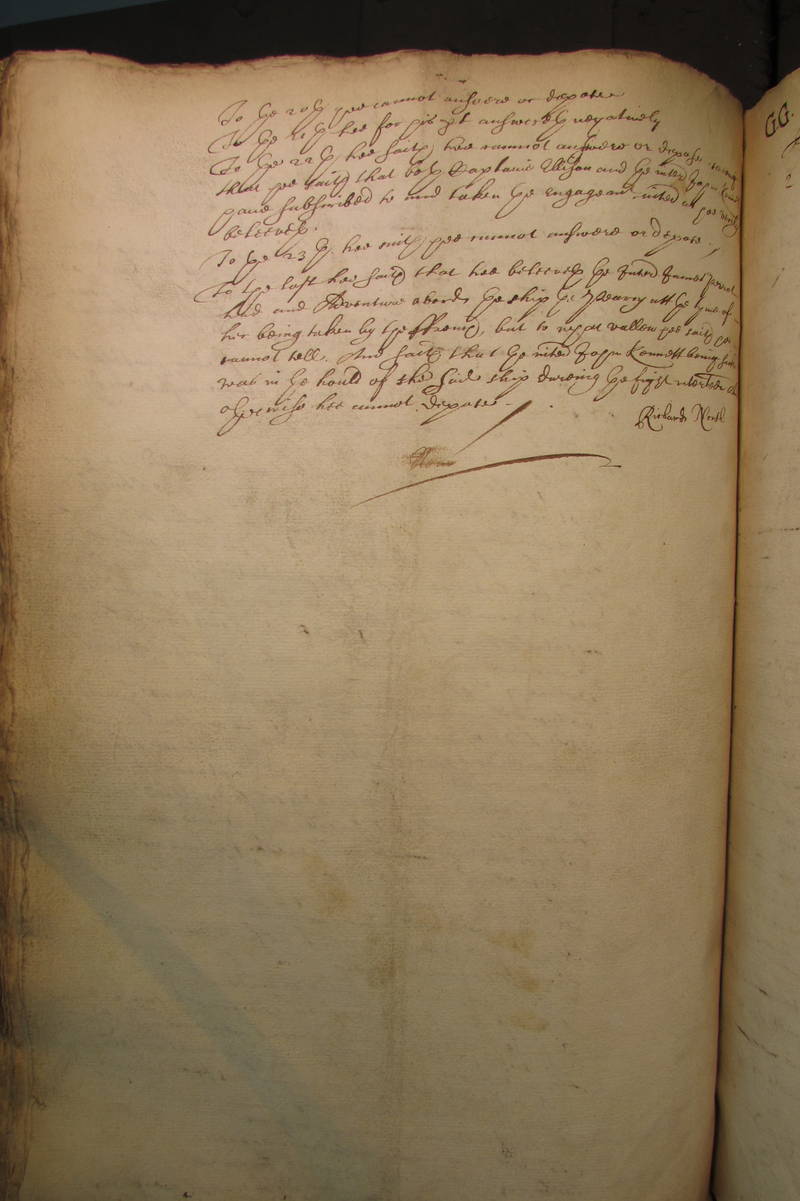 To the 20th hee cannot answere or depose
To the 21th hee for his p̄t answereth negatively
To the 22th hee saith hee cannot answere or depose saving
that hee saith that both Captaine Ellison and the inted John
have subscribed to and taken the engagemt inted as hee
beleeveth.
To the 23th hee saith hee cannot answere or depose
To the last hee saith that hee beleeveth the Inted James
had and Adventure aboard the ship the Pearry att the tyme of
her being taken by the ffrench, but to what vallew hee saith hee
cannot tell. And saith that the inted John Kennett
was in the hould of the said ship dureing the fight
otherwise hee cannot depose
Richard
GG.